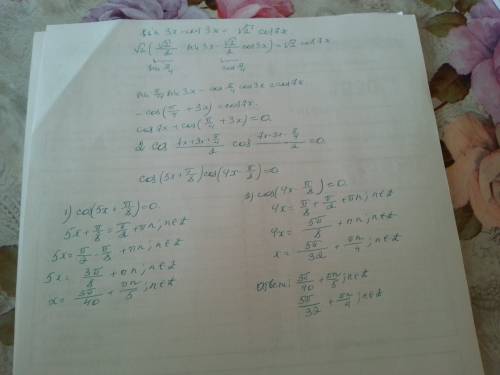 sin 3x - cos 3x = √2 cos 7x
√2(√2/2 sin 3x - √2/2 cos 3x) = √2 cos 7x
sin π/4 cos π/4
sin π/4 sin 3x - cos π/4 cos 3x = cos 7x
- cos(π/4 + 3x) = cos 7x
cos 7x + cos(π/4 + 3x) = 0
2 cos (7x+3x+π/4)/2 cos (7x-3x-π/4)/2 = 0
cos(5x + π/8) cos(4x - π/8) = 0
1) cos(5x + π/8) = 0
5x + π/8 = π/2 + πn; n∈Z
5x = π/2 - π/8 + πn; n∈Z
5x = 3π/8 + πn; n∈Z
x = 3π/40 + πn/5; n∈Z
2) cos(4x - π/8) = 0
4x = π/8 + π/2 + πn; n∈Z
4x = 5π/8 + πn; n∈Z
x = 5π/32 + πn/4; n∈Z
Ответ: 3π/40 + πn/5; n∈Z
5π/32 + πn/4; n∈Z